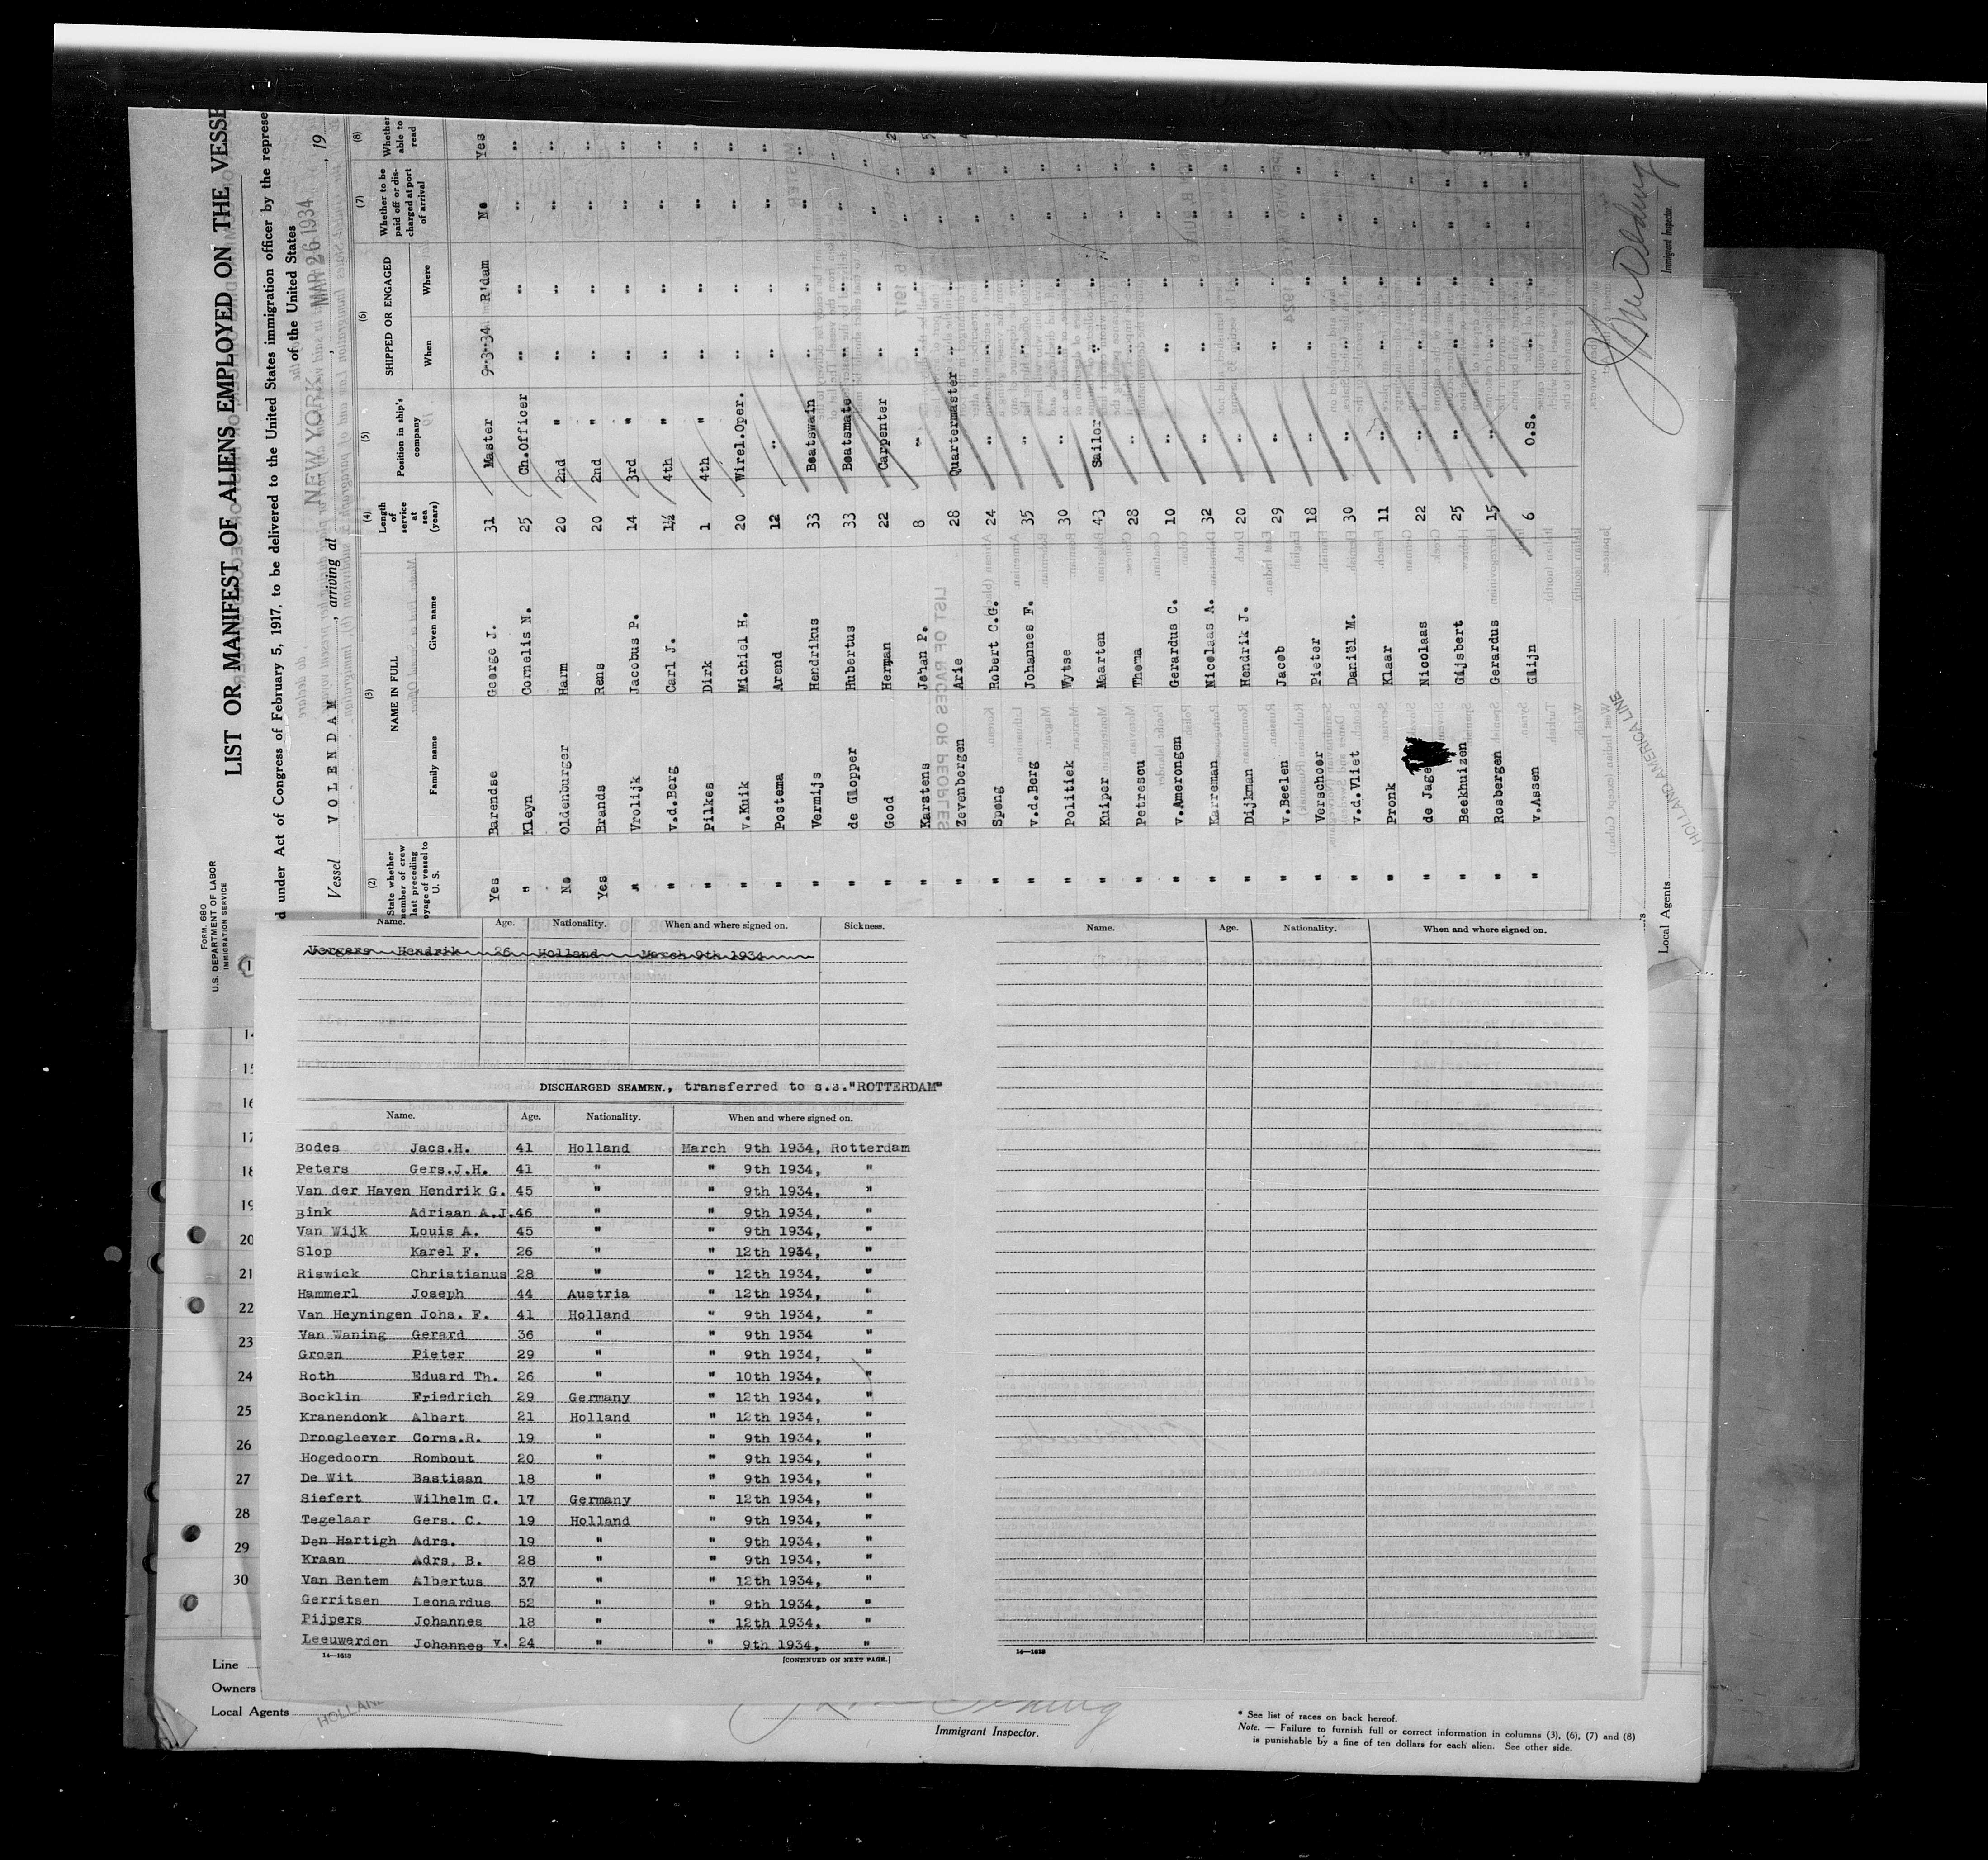 LIST OR MANIFEST OF ALIENS EMPLOYED ON THE VESSE
d under Act of Congress of February 5, 1917, to be delivered to the United States immigration officer by the represe
of the United States
FORM. 680
U.S. DEPARTMENT OF LABOR
IMMIGRATION SERVICE
Vessel VOLENDAM, arriving at NEW YORK, MAR 26 1934, 19
(2) (3) (4) (5) (6) (7) (8)
State whether member of crew last preceding voyage of vessel to U. S. NAME IN FULL Family name Given name Length of service at sea (years) Position in ship's company SHIPPED OR ENGAGED When Where Whether to be paid off or discharged at port of arrival Whether able to read
Yes Barendse George J. 31 Master 9-3-34 R'dam No Yes
" Kleyn Cornelis N. 25 Ch.Officer " " " "
No Oldenburger Harm 20 2nd " " " " "
Yes Brands Rens 20 2nd " " " " "
" Vrolijk Jacobus P. 14 3rd " " " " "
" v.d.Berg Carl J. 1½ 4th " " " " "
" Pilkes Dirk 1 4th " " " " "
" v.Kuik Michiel H. 20 Wirel.Oper. " " " "
" Postema Arend 12 " " " " "
" Vermijs Hendrikus 33 Boatswain " " " "
" de Glopper Hubertus 33 Boatsmate " " " "
" Good Herman 22 Carpenter " " " "
" Karstens Johan P. 8 " " " " "
" Zevenbergen Arie 28 Quartermaster " " " "
" Speng Robert C.G. 24 " " " " "
" v.d.Berg Johannes F. 35 " " " " "
" Politiek Wytse 30 " " " " "
" Kuiper Maarten 43 Sailor " " " "
" Petrescu Thoma 28 " " " " "
" v.Amerongen Gerardus C. 10 " " " " "
" Karreman Nicolaas A. 32 " " " " "
" Dijkman Hendrik J. 20 " " " " "
" v.Beelen Jacob 29 " " " " "
" Verschoor Pieter 18 " " " " "
" v.d.Vliet Daniël M. 30 " " " " "
" Pronk Klaar 11 " " " " "
" de Jage Nicolaas 22 " " " " "
" Beekhuizen Gijsbert 25 " " " " "
" Rosbergen Gerardus 15 " " " " "
" v.Assen Glijn 6 O.S. " " " "
Local Agents HOLLAND AMERICA LINE
Immigrant Inspector.
Name. Age. Nationality. When and where signed on. Sickness.
Vergers Hendrik 26 Holland March 9th 1934
DISCHARGED SEAMEN., transferred to s.s."ROTTERDAM"
Name. Age. Nationality. When and where signed on.
Bodes Jacs.H. 41 Holland March 9th 1934, Rotterdam
Peters Gers.J.H. 41 " " 9th 1934, "
Van der Haven Hendrik G. 45 " " 9th 1934, "
Bink Adriaan A.J. 46 " " 9th 1934, "
Van Wijk Louis A. 45 " " 9th 1934, "
Slop Karel F. 26 " " 12th 1934, "
Riswick Christianus 28 " " 12th 1934, "
Hammerl Joseph 44 Austria " 12th 1934, "
Van Heyningen Johs. F. 41 Holland " 9th 1934, "
Van Waning Gerard 36 " " 9th 1934 "
Groen Pieter 29 " " 9th 1934, "
Roth Eduard Th. 26 " " 10th 1934, "
Bocklin Friedrich 29 Germany " 12th 1934, "
Kranendonk Albert 21 Holland " 12th 1934, "
Droogleever Corns.R. 19 " " 9th 1934, "
Hogedoorn Rombout 20 " " 9th 1934, "
De Wit Bastiaan 18 " " 9th 1934, "
Siefert Wilhelm C. 17 Germany " 12th 1934, "
Tegelaar Gers. C. 19 Holland " 9th 1934, "
Den Hartigh Adrs. 19 " " 9th 1934, "
Kraan Adrs. B. 28 " " 9th 1934, "
Van Bentem Albertus 37 " " 12th 1934, "
Gerritsen Leonardus 52 " " 9th 1934, "
Pijpers Johannes 18 " " 12th 1934, "
Leeuwerden Johannes v. 24 " " 9th 1934, "
14—1613
[CONTINUED ON NEXT PAGE.]
Name. Age. Nationality. When and where signed on.
14—1613
14
15
16
17
18
19
20
21
22
23
24
25
26
27
28
29
30
Line
Owners
Local Agents HOLLAND
Immigrant Inspector.
* See list of races on back hereof.
Note. — Failure to furnish full or correct information in columns (3), (6), (7) and (8)
is punishable by a fine of ten dollars for each alien. See other side.